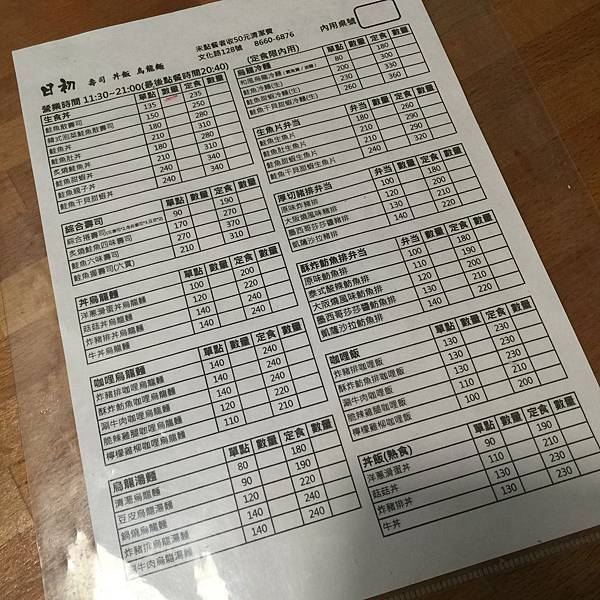 未點餐者收50元清潔費
文化路128號 8660-6876
內用桌號
日初 壽司 丼飯 烏龍麵
營業時間 11:30~21:00(最後點餐時間20:40)
(定食限內用)
生食丼 單點 數量 定食 數量
鮭魚散壽司 135 235
韓式泡菜鮭魚散壽司 150 250
鮭魚丼 180 280
鮭魚肚丼 210 310
炙燒鮭魚丼 180 280
鮭魚甜蝦丼 210 310
鮭魚親子丼 240 340
鮭魚干貝甜蝦丼 240 340
綜合壽司 單點 數量 定食 數量
綜合捲壽司 90 190
炙燒鮭魚四味壽司 170 270
鮭魚六味壽司 270 370
鮭魚握壽司(六貫) 210 310
丼烏龍麵 單點 數量 定食 數量
洋蔥滑蛋丼烏龍麵 100 200
菇菇丼烏龍麵 120 220
炸豬排丼烏龍麵 140 240
牛丼烏龍麵 140 240
咖哩烏龍麵 單點 數量 定食 數量
炸豬排咖哩烏龍麵 140 240
酥炸魴魚咖哩烏龍麵 140 240
涮牛肉咖哩烏龍麵 140 240
脆辣雞腿咖哩烏龍麵 120 220
檸檬雞柳咖哩烏龍麵 110 210
烏龍湯麵 單點 數量 定食 數量
清湯烏龍麵 80 180
豆皮烏龍湯麵 90 190
鍋燒烏龍麵 120 220
炸豬排烏龍湯麵 140 240
涮牛肉烏龍湯麵 140 240
烏龍冷麵 單點 數量 定食 數量
和風烏龍冷麵 80 180
鮭魚冷麵(生) 200 300
鮭魚甜蝦冷麵(生) 230 330
鮭魚干貝甜蝦冷麵(生) 260 360
生魚片弁当 弁当 數量 定食 數量
鮭魚生魚片 180 260
鮭魚肚生魚片 210 290
鮭魚甜蝦生魚片 210 290
鮭魚干貝甜蝦生魚片 240 320
厚切豬排弁当 弁当 數量 定食 數量
原味炸豬排 100 180
大阪燒風味豬排 120 200
墨西哥莎莎醬豬排 120 200
凱薩沙拉豬排 140 220
酥炸魴魚排弁当 弁当 數量 定食 數量
原味魴魚排 100 180
泰式酸辣魴魚排 120 200
大阪燒風味魴魚排 120 200
墨西哥莎莎醬魴魚排 120 200
凱薩沙拉魴魚排 140 220
咖哩飯 單點 數量 定食 數量
炸豬排咖哩飯 130 230
酥炸魴魚排咖哩飯 130 230
涮牛肉咖哩飯 130 230
脆辣雞腿咖哩飯 110 210
檸檬雞柳咖哩飯 100 200
丼飯(熱食) 單點 數量 定食 數量
洋蔥滑蛋丼 90 190
菇菇丼 110 210
炸豬排丼 130 230
牛丼 130 230